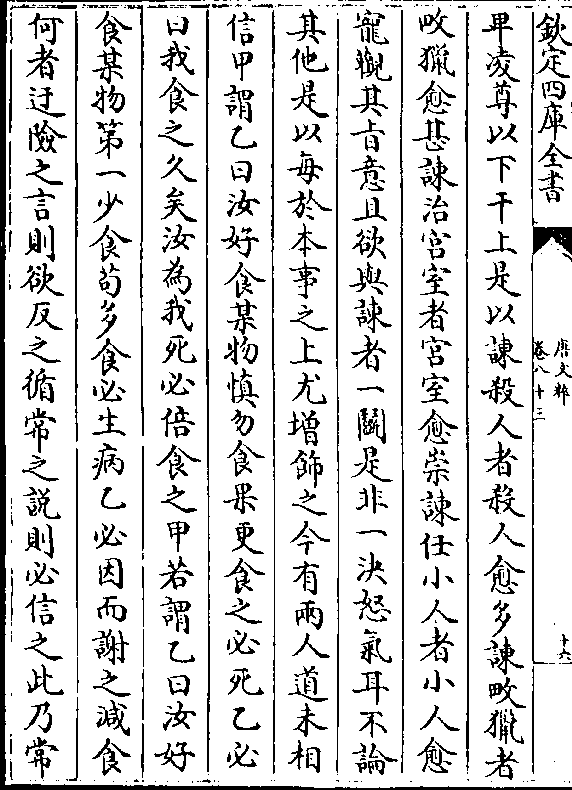 欽定四庫全書
唐文粹
卷八十三
十六
卑凌尊以下干上是以諫殺人者殺人愈多諫畋獵者
畋獵愈甚諫治宮室者宮室愈崇諫任小人者小人愈
寵觀其旨意且欲與諫者一鬭是非一決怒氣耳不論
其他是以每於本事之上尤增飾之今有兩人道未相
信甲謂乙曰汝好食某物慎勿食果更食之必死乙必
曰我食之久矣汝為我死必倍食之甲若謂乙曰汝好
食某物第一少食苟多食必生病乙必因而謝之減食
何者迂險之言則欲反之循常之說則必信之此乃常